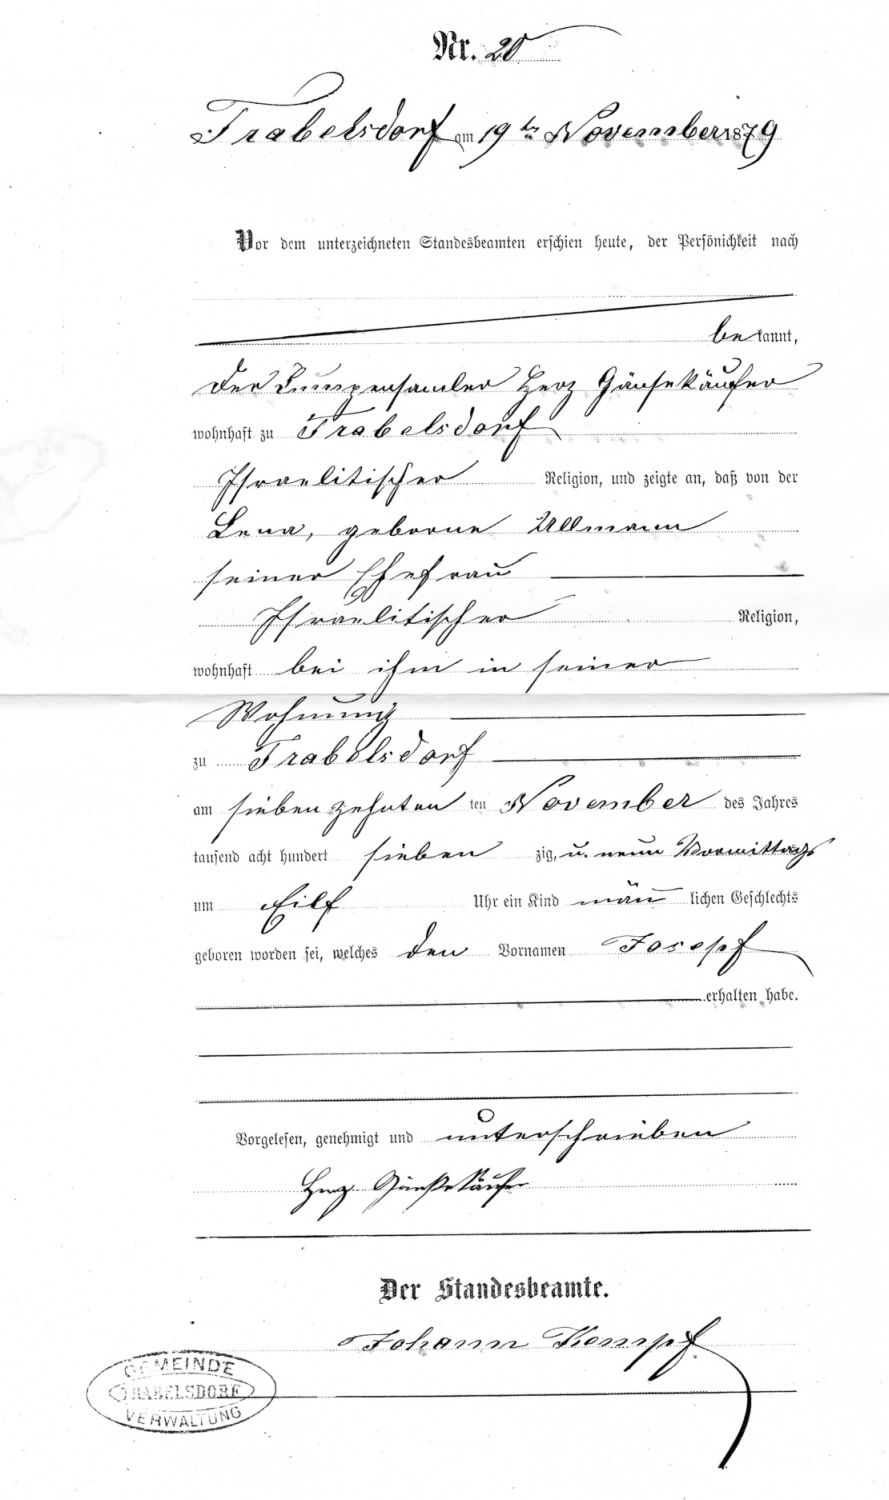 Nr. 20
Trabelsdorf am 19ten November 1879
Vor dem unterzeichneten Standesbeamten erschien heute, der Persönichkeit nach
bekannt,
der Lumpensamler Herz Gänsekäufer
wohnhaft zu Trabelsdorf
Israelitischer Religion, und zeigte an, daß von der
Lena, geborne Ullmann
seiner Ehefrau
Israelitischer Religion,
wohnhaft bei ihm in seiner
Wohnung
zu Trabelsdorf
am siebenzehnten ten November des Jahres
tausend acht hundert sieben zig, u. neun Vormittags
um Eilf Uhr ein Kind männlichen Geschlechts
geboren worden sei, welches den Vornamen Josepf
erhalten habe.
Vorgelesen, genehmigt und unterschrieben
Herz Gänsekäufer
Der Standesbeamte.
Johann Kempf
GEMEINDE
TRABELSDORF
VERWALTUNG